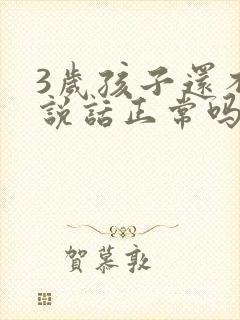 3歲孩子還不
說話正常嗎
賀慕敦